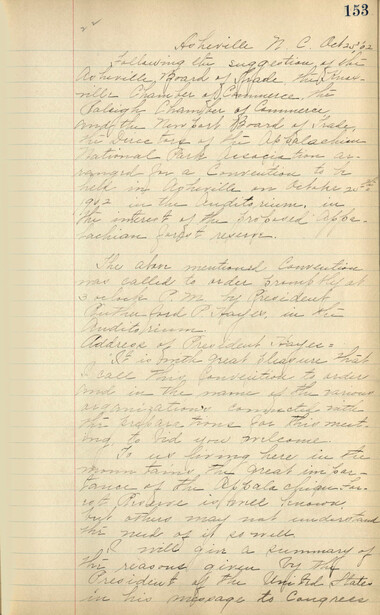 153
Asheville N. C. Oct 25, 02
Following the suggestion of the
Asheville Board of Trade, the Knox-
ville Chamber of Commerce, the
Raleigh Chamber of Commerce
and the Newport Board of Trade,
the Directors of the Appalachian
National Park Association ar-
ranged for a Convention to be
held in Asheville on October 25th
1902 in the Auditorium, in
the interest of the proposed Appa-
lachian forest reserve.
The above mentioned Convention
was called to order promptly at
3 oclock P.M. by President
Rutherford P. Hayes, in the
Auditorium
Address of President Hayes.
"It is with great pleasure that
I call this Convention to order
and in the name of the various
organizations connected with
the preparations for this meet-
ing, to bid you welcome.
To us living here in the
mountains, the great impor-
tance of the Appalachian For-
est Reserve is well known,
but others may not understand
the need of it so well.
I will give a summary of
the reasons given by the
President of the United States
in his message to Congress